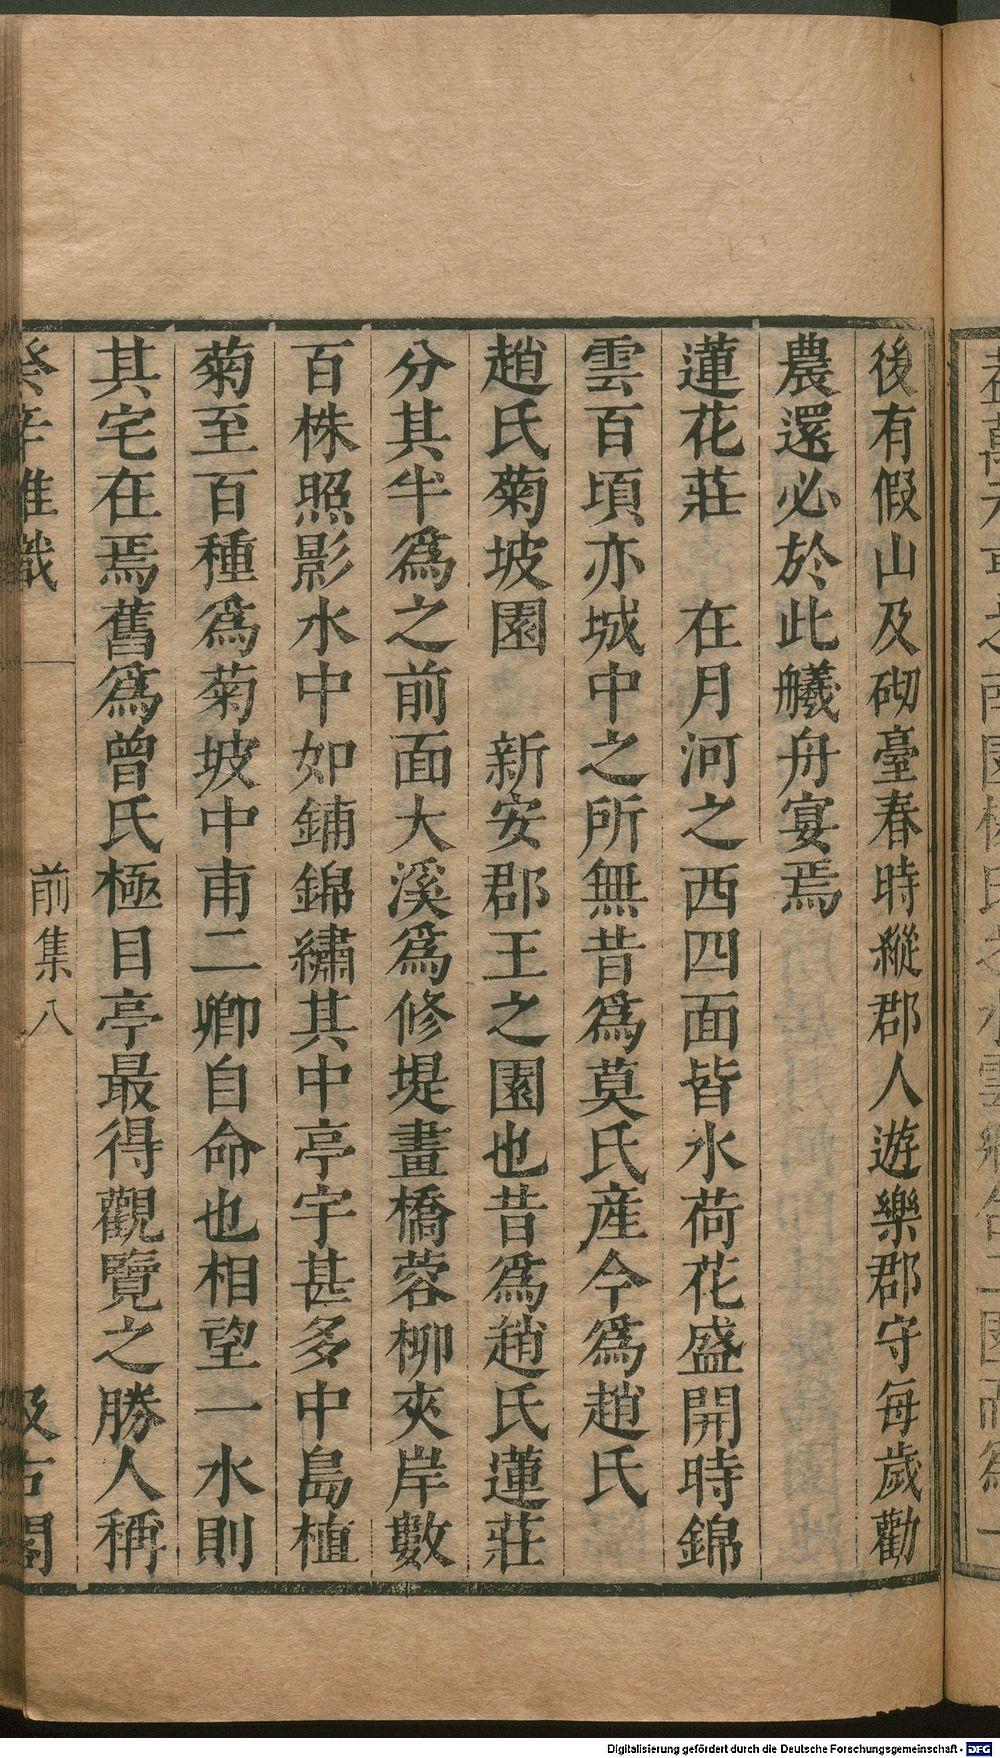 後有假山及砌臺春時縱郡人遊樂郡守每歲勸
農還必於此艤舟宴焉
蓮花莊　在月河之西四面皆水荷花盛開時錦
雲百頃亦城中之所無昔為莫氏産今為趙氏
趙氏菊坡園　新安郡王之園也昔為趙氏蓮莊
分其半為之前面大溪為修堤畫橋蓉柳夾岸數
百株照影水中如鋪錦繡其中亭宇甚多中島植
菊至百種為菊坡中甫二卿自命也相望一水則
其宅在焉舊為曾氏極目亭最得觀覽之勝人稱
癸辛雜識　前集八　汲古閣
Digitalisierung gefördert durch die Deutsche Forschungsgemeinschaft - DFG